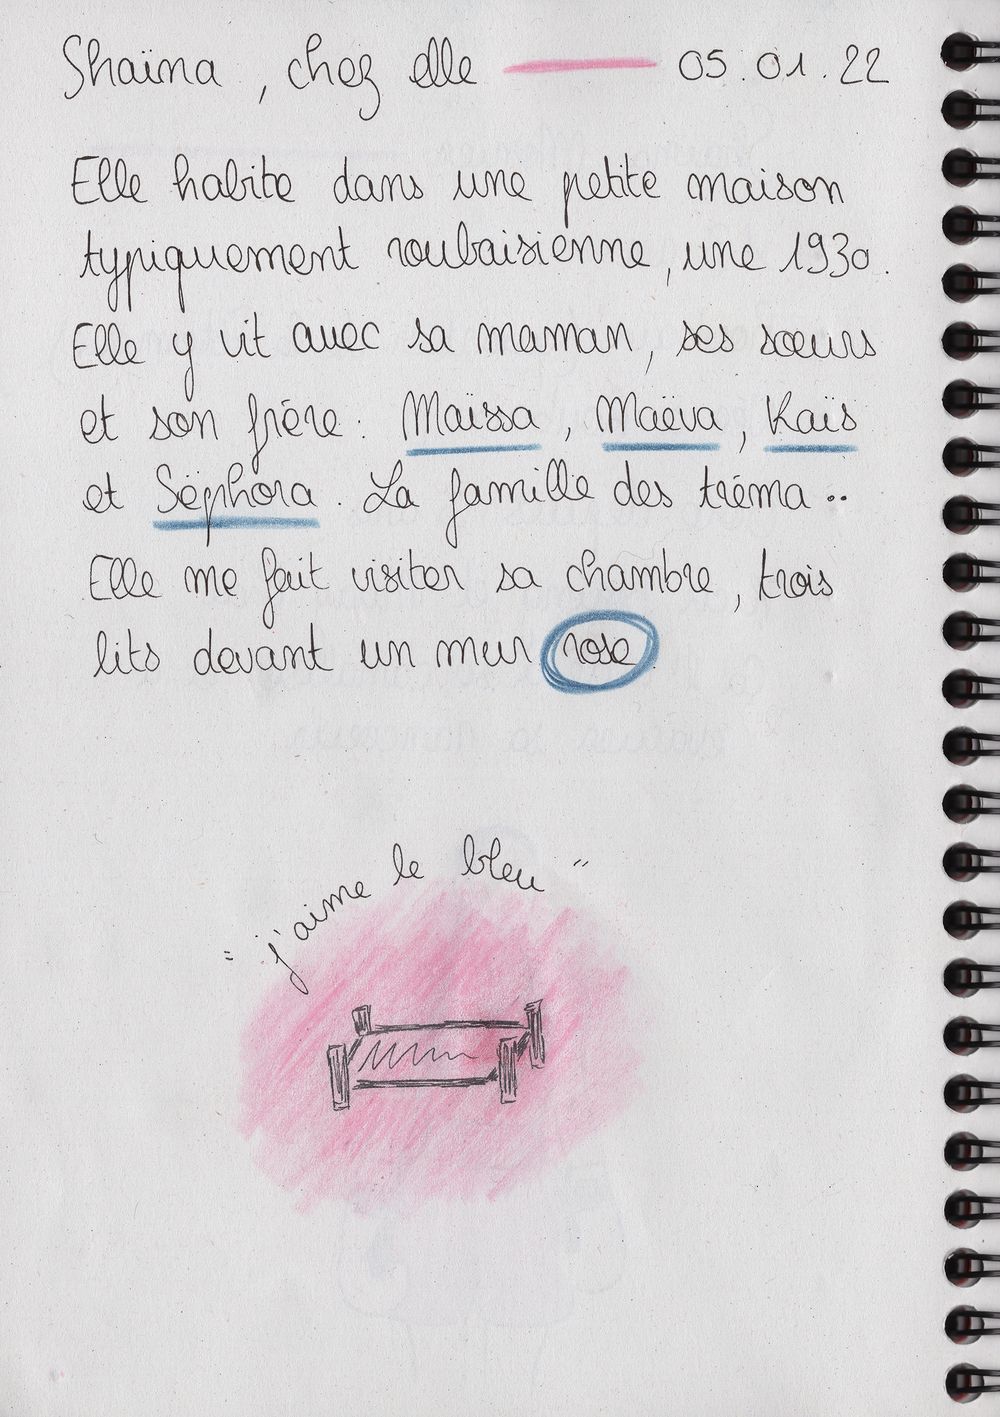 Shaïna, chez elle 05.01.22
Elle habite dans une petite maison
typiquement roubaisienne, une 1930.
Elle y vit avec sa maman, ses sœurs
et son frère : Maïssa, Maëva, Kaïs
et Sëphora. La famille des tréma ..
Elle me fait visiter sa chambre, trois
lits devant un mur rose
"j'aime le bleu"